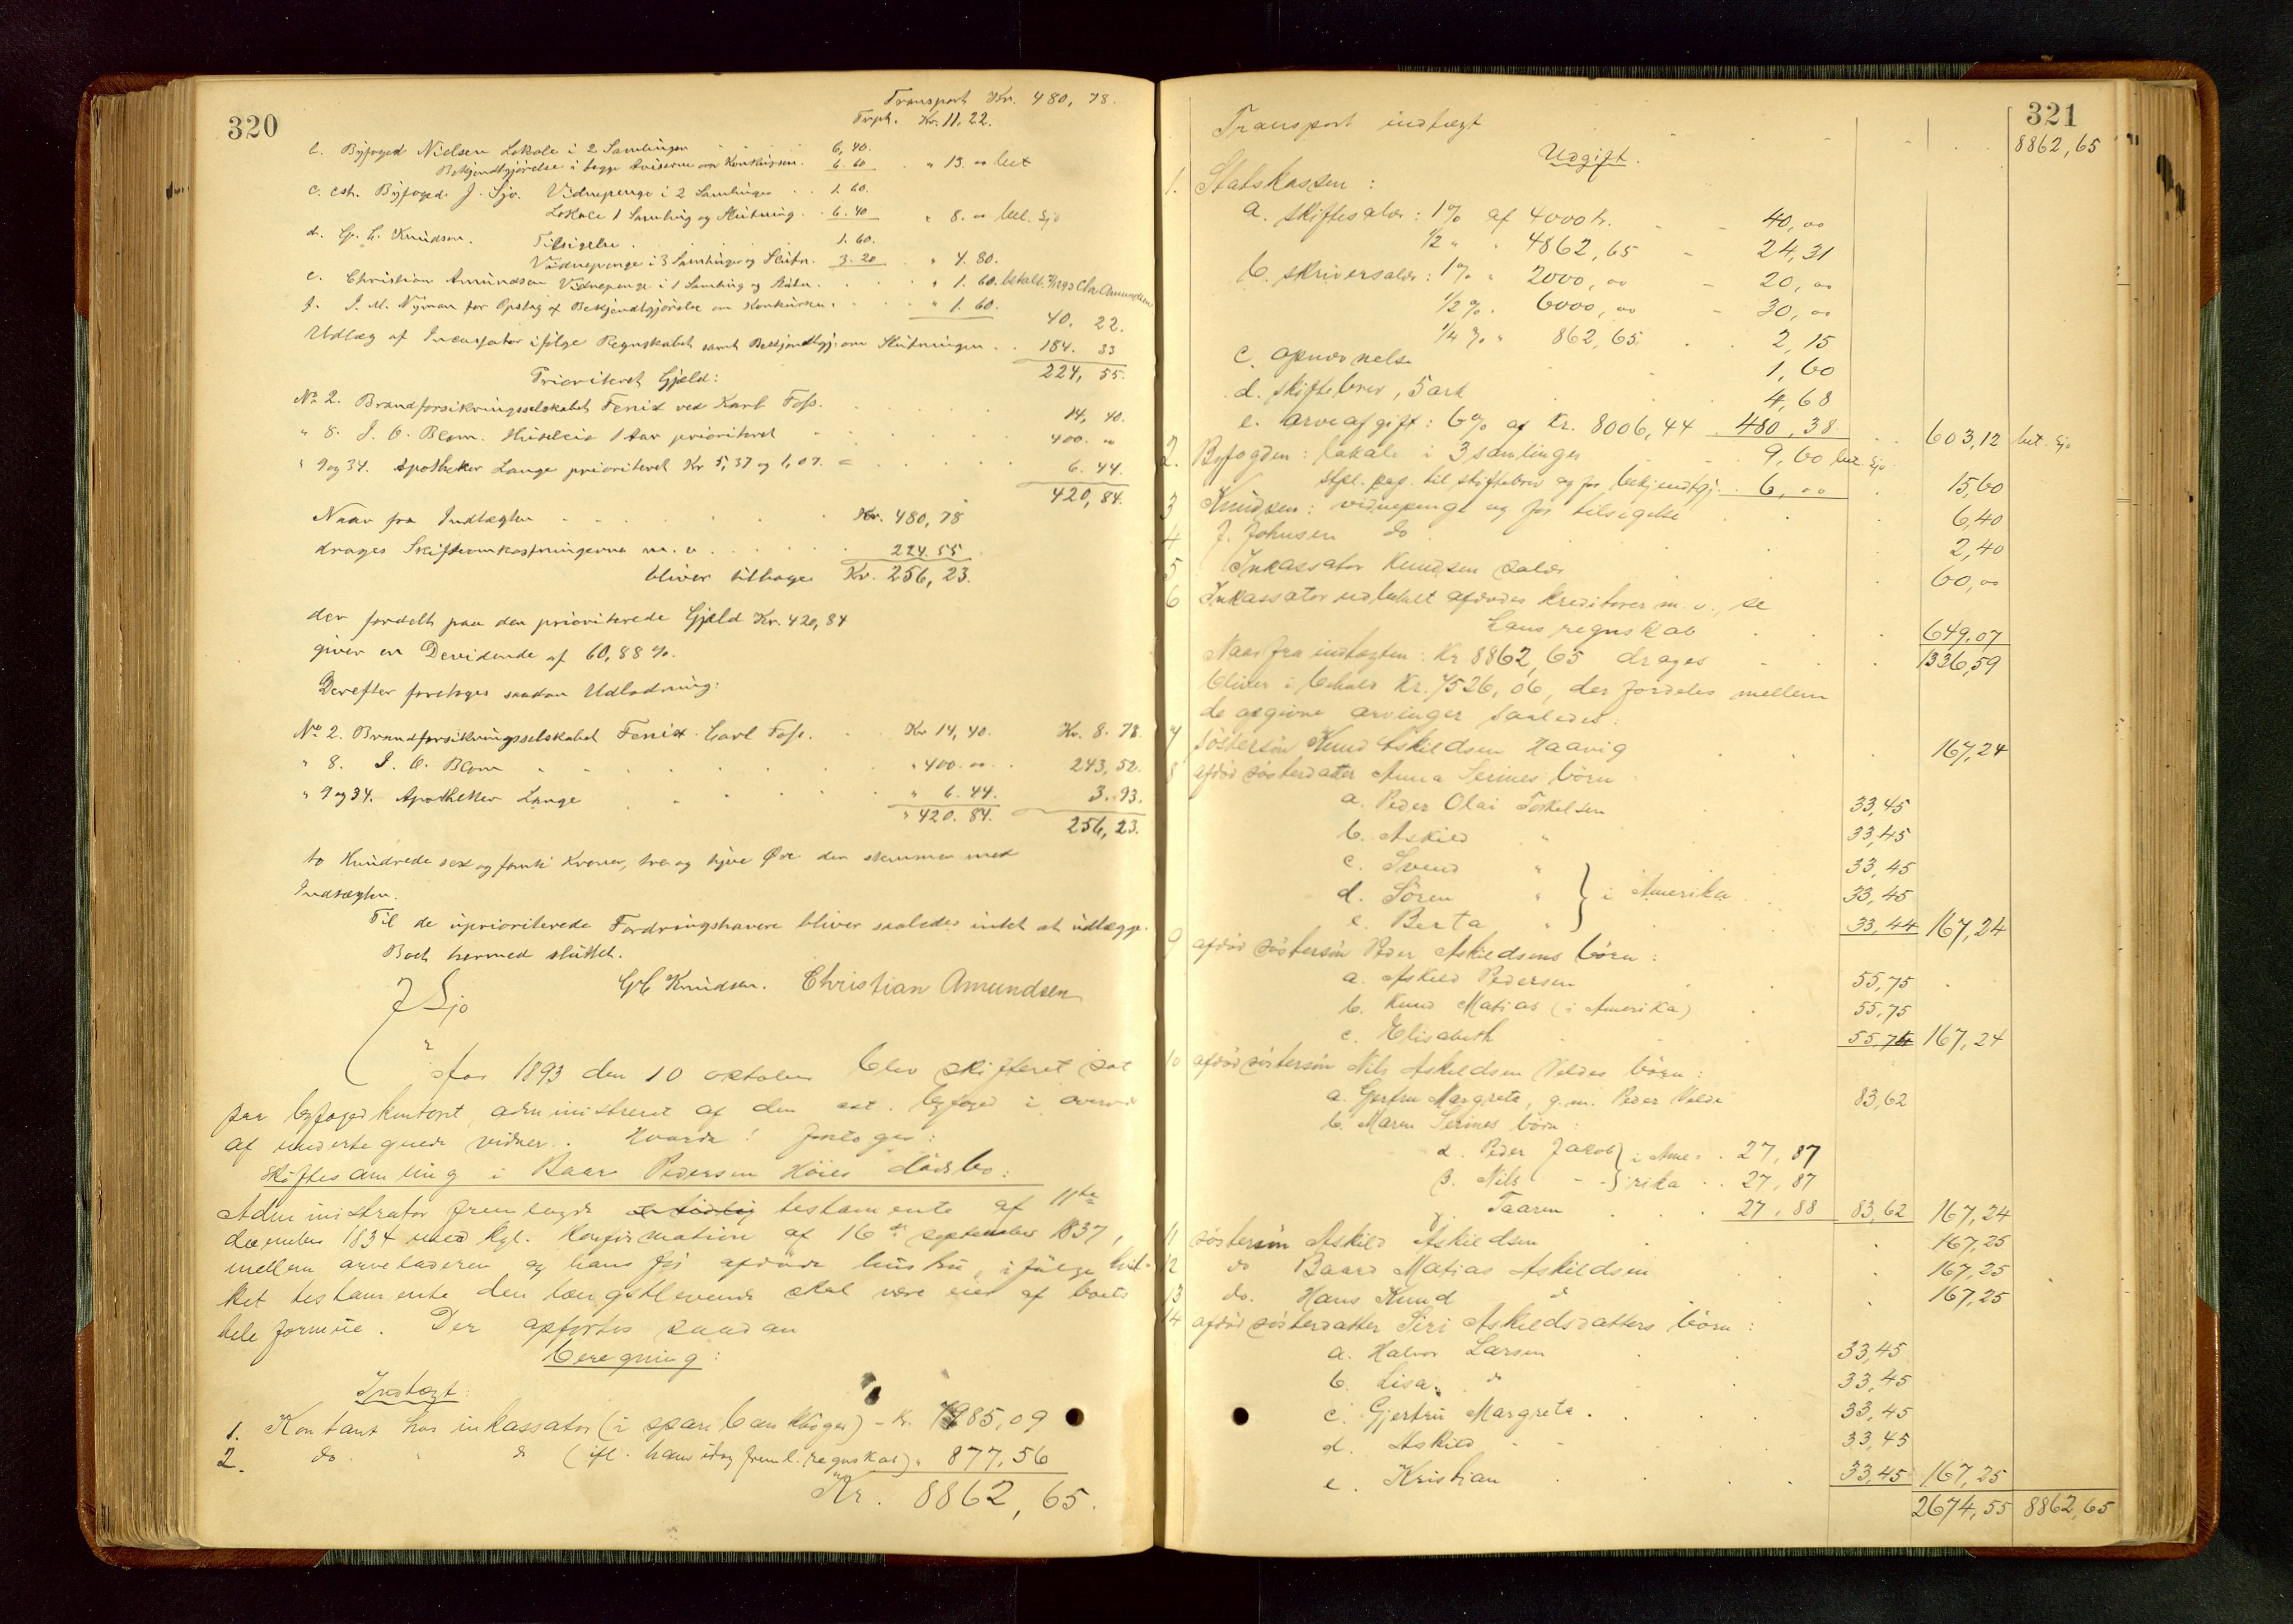 320
Transport Kr. 480,78.
Trpt. Kr. 11.22.
b. Byfoged Nielsen Lokale i 2 Samlinger 6,40.
Bekjendtgjørelse i begge Aviserne om Konkursen. 6.60 " 13.00 bet
c. cst. Byfoged J. Sjo. Vidnepenge i 2 Samlinger 1.60.
Lokale 1 Samling og Slutning. 6.40 " 8.00 bet. Sjo
d. G. C. Knudsen. Tilsigelse. 1.60.
Vidnepenge i 3 Samlinger og Slutn. 3.20 " 4.80.
e. Christian Amundsen Vidnepenge i 1 Samling og Slutn. " 1.60. betalt Chr Amundsen
f. J. M. Nyman for Opslag af Bekjendtgjørelse om Konkursen. " 1.60.
40. 22.
Udlæg af Incassator ifølge Regnskabet samt Bekjendtgj. om Slutningen 184. 33
224, 55.
Prioriteret Gjæld:
No 2. Brandforsikringsselskabet Fenix ved Karl Foss. 14, 40.
" 8. J. C. Blom. Husleie 1 Aar prioriteret 400. 00
" 9 og 34. Apotheker Lange prioriteret Kr 5,37 og 1,07. = 6. 44.
420, 84.
Naar fra Indtægten Kr. 480,78
drages Skifteomkostningerne m. v. 224.55
bliver tilbage Kr. 256,23.
der fordelt paa den prioriterede Gjæld Kr. 420,84
giver en Devidende af 60,88 %.
Derefter foretages saadan Udlodning:
No 2. Brandforsikringsselskabet Fenix - Carl Foss. Kr 14,40. Kr. 8. 78.
" 8. J. C. Blom " 400.00. 243,52.
" 9 og 34. Apotheker Lange " 6.44. 3.93.
" 420.84. 256,23.
to Hundrede sex og femti Kroner, tre og tyve Øre der stemmer med
Indtægten.
Til de uprioriterede Fordringshavere bliver saaledes intet at udlægge.
Boet hermed sluttet.
J Sjo G C Knudsen. Christian Amundsen
Aar 1893 den 10 oktober blev skifteret sat
paa byfogedkontoret, administreret af den cst. byfoged i overvær
af undertegnede vidner. Hvorda! foretoges:
Skiftesamling i Baar Pedersen Høies dødsbo:
Administrator fremlagde testamente af 11te
december 1834 med kgl. konfirmation af 16de september 1837,
mellem arveladeren og hans før afdøde hustru, ifølge hvil-
ket testamente den længstlevende skal være eier af boets
hele formue. Der opførtes saadan
beregning:
Indtægt:
1. Kontant hos inkassator (i sparebankbøger) - Kr. 7985,09
2. do " do (ifl. hans idag freml. regnskab) " 877,56
Kr. 8862, 65.
321
Transport indtægt 8862,65
Udgift.
1. Statskassen:
a. skiftesalær: 1% af 4000 kr. 40,00
1/2 " " 4862,65 24,31
b. skriversalær: 1% " 2000,00 20,00
1/2 % " 6000,00 30,00
1/4 % " 862,65 2,15
c. opnævnelse 1,60
d. skiftebrev, 5 ark 4,68
e. arveafgift: 6% af Kr. 8006,44 480,38 603,12 bet. Sjo
2. Byfogden: lokale i 3 samlinger 9,60 bet. Sjo
stpl. pap. til skiftebrev og for bekjendtgj. 6,00 15,60
3 Knudsen: vidnepenge og for tilsigelse 6,40
4 J. Johnsen do 2,40
5 Inkassator Knudsen salær 60,00
6 Inkassator udbetalt afdødes kreditorer m. v., se
hans regnskab 649,07
Naar fra indtægten: Kr 8862,65 drages 1336,59
bliver i behold Kr. 7526,06, der fordeles mellem
de opgivne arvinger saaledes:
7 Søstersøn Knud Askildsen Haavig 167,24
8 afdød søsterdatter Anna Serines børn
a. Peder Olai Torkelsen 33,45
b. Askild " 33,45
c. Svend " 33,45
d. Søren " } i Amerika 33,45
e. Berta " 33,44 167,24
9 afdød søstersøn Peder Askildsens børn:
a. Askild Pedersen 55,75
b. Knud Matias (i Amerika) 55,75
c. Elisabeth 55,74 167,24
10 afdød søstersøn Nils Askildsen Veldes børn:
a. Gjertru Margrete, g. m. Peder Velde 83,62
b. Maren Serines børn:
α. Peder Jakob } i Ame- 27,87
β. Nils - - } rika 27,87
γ. Taaren 27,88 83,62 167,24
11 søstersøn Askild Askildsen 167,25
12 do Baard Matias Askildsen 167,25
13 do. Hans Knud do 167,25
14 afdød søsterdatter Siri Askildsdatters børn:
a. Halvor Larsen 33,45
b. Lisa do 33,45
c. Gjertru Margrete. 33,45
d. Askild - - 33,45
e. Kristian 33,45 167,25
2674,55 8862,65